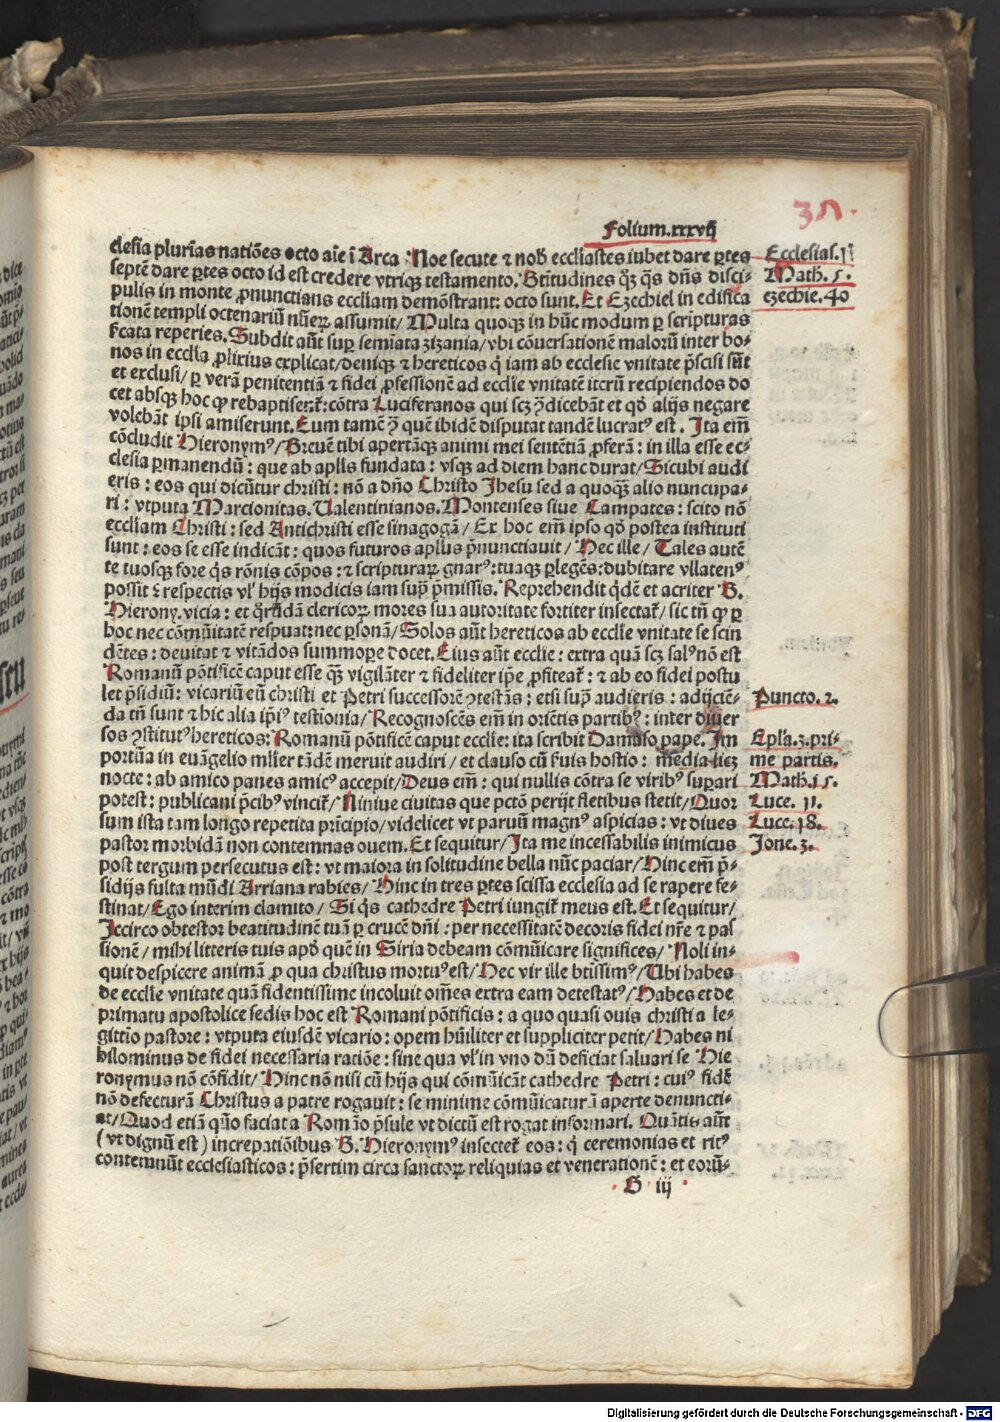 Folium.xxxvij
37.
clesia plurīas natiōes octo aīe ī Arca. Noe secute ⁊ nob̄ eccl̄iastes iubet dare ꝑtes
septē dare ꝑtes octo id est credere vtriqꝫ testamento. Btītudines qꝫ q̄s dn̄s disci-
pulis in monte ꝓnunctians eccl̄iam demōstrant: octo sunt. Et Ezechiel in edifica
tionē templi octenariū nūeꝝ assumit/ Multa quoqꝫ in hūc modum ꝑ scripturas
reperies. Subdit aūt suꝑ semiata zizania/ vbi cōuersationē malorū inter bo-
nos in eccl̄ia ꝓlixius explicat/ deniqꝫ ⁊ hereticos q̄ iam ab ecclesie vnitate p̄scisi sūt
et exclusi/ ꝑ verā penitentiā ⁊ fidei ꝓfessionē ad eccl̄ie vnitatē iterū recipiendos do
cet absqꝫ hoc ꝙ rebaptisent̄: cōtra Luciferanos qui scꝫ p̄dicebāt et qd̄ alijs negare
volebāt ipsi amiserunt. Eum tamē ꝯ quē ibidē disputat tandē lucratꝰ est. Ita em̄
cōcludit Hieronymꝰ/ Breuē tibi apertāqꝫ animi mei sentētiā ꝓferā: in illa esse ec-
clesia ꝑmanendū: que ab apl̄is fundata: vsqꝫ ad diem hanc durat/ Sicubi audi
eris: eos qui dicūtur christi: nō a dn̄o Christo Jhesu sed a quoqꝫ alio nuncupa-
ri: vtputa Marcionitas. Valentinianos. Montenses siue Campates: scito nō
eccl̄iam Christi: sed Antichristi esse sinagogā/ Ex hoc em̄ ipso qd̄ postea instituti
sunt: eos se esse indicāt: quos futuros apl̄us p̄nunctiauit/ Hec ille/ Tales autē
te tuosqꝫ fore q̄s rōnis cōpos: ⁊ scripturaꝝ gnarꝰ: tuaqꝫ ꝑlegēs: dubitare vllatenꝰ
possit respectis vl̄ hijs modicis iam suꝑ p̄missis. Reprehendit qd̄ē et acriter B.
Hierony. vicia: et q̄rūdā clericoꝝ mores sua autoritate fortiter insectat̄/ sic tn̄ ꝙ ꝑ
hoc nec cōmūitatē respuat: nec ꝑsonā/ Solos aūt hereticos ab eccl̄ie vnitate se scin
dētes: deuitat ⁊ vitādos summoꝑe docet. Eius aūt eccl̄ie: extra quā scꝫ salꝰ nō est
Romanū pōtificē caput esse qꝫ vigilāter ⁊ fideliter ip̄e ꝓfiteat̄: ⁊ ab eo fidei postu
let p̄sidiū: vicariū eū christi et Petri successorē ꝯtestās: etsi sup̄ audieris: adijciē-
da tn̄ sunt ⁊ hic alia ip̄iꝰ testionia/ Recognoscēs em̄ in oriētis partibꝰ: inter diuer
sos ꝯstitutꝰ hereticos: Romanū pōtificē caput eccl̄ie: ita scribit Damaso pape. Im
portūa in euāgelio ml̄ier tādē meruit audiri/ et clauso cū suis hostio: media licꝫ
nocte: ab amico panes amicꝰ accepit/ Deus em̄: qui nullis cōtra se viribꝰ suꝑari
potest: publicani p̄cibꝰ vincit̄/ Niniue ciuitas que pctō perijt fletibus stetit/ Quor
sum ista tam longo repetita prīcipio/ videlicet vt paruū magnꝰ aspicias: vt diues
pastor morbidā non contemnas ouem. Et sequitur/ Ita me incessabilis inimicus
post tergum persecutus est: vt maiora in solitudine bella nūc paciar/ Hinc em̄ p̄-
sidijs fulta mūdi Arriana rabies/ Hinc in tres ꝑtes scissa ecclesia ad se rapere fe-
stinat/ Ego interim clamito/ Si q̄s cathedre Petri iungit̄ meus est. Et sequitur/
Iccirco obtestor beatitudinē tuā ꝑ crucē dn̄i: per necessitatē decoris fidei nr̄e ⁊ pas
sionē/ mihi litteris tuis apd̄ quē in Siria debeam cōmūicare significes/ Noli in-
quit despicere animā ꝓ qua christus mortuꝰ est/ Hec vir ille btissimꝰ/ Ubi habes
de eccl̄ie vnitate quā fidentissime incoluit om̄es extra eam detestatꝰ/ Habes et de
primatu apostolice sedis hoc est Romani pōtificis: a quo quasi ouis christi a le-
gittīo pastore: vtputa eiusdē vicario: opem hūiliter et suppliciter petit/ Habes ni
hilominus de fidei necessaria ratiōe: sine qua vl̄ in vno dū deficiat saluari se Hie
ronymus nō cōfidit/ Hinc nō nisi cū hijs qui cōmūicāt cathedre Petri: cuiꝰ fidē
nō defecturā Christus a patre rogauit: se minime cōmūicaturū aperte denuncti-
at/ Quod etiā quo faciat a Romāo p̄sule vt dictū est rogat informari. Quātis aūt
(vt dignū est) increpatiōibus B. Hieronymꝰ insectet̄ eos: q̄ ceremonias et ritꝰ
contemnūt ecclesiasticos: p̄sertim circa sanctoꝝ reliquias et venerationē: et eorū-
G iij
Ecclesias. 11
Math. 5.
ezechie. 40
Puncto. 2.
Epl̄a. 3. pri-
me partis.
Math. 15.
Luce. 11.
Luce. 18.
Jone. 3.
Digitalisierung gefördert durch die Deutsche Forschungsgemeinschaft - DFG